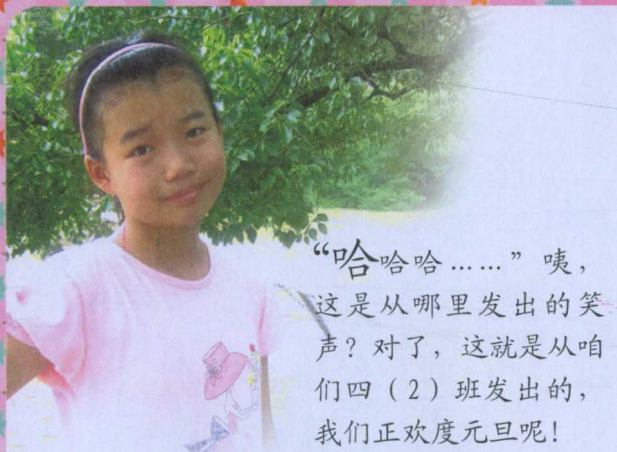 “哈哈哈……”咦，
这是从哪里发出的笑
声？对了，这就是从咱
们四（2）班发出的，
我们正欢度元旦呢！